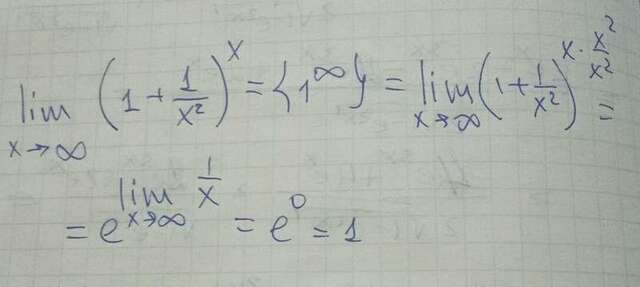 lim x→∞ (1 + 1/x²)^x = {1^∞} = lim x→∞ (1 + 1/x²)^(x · x²/x²) =
= e^(lim x→∞ 1/x) = e^0 = 1